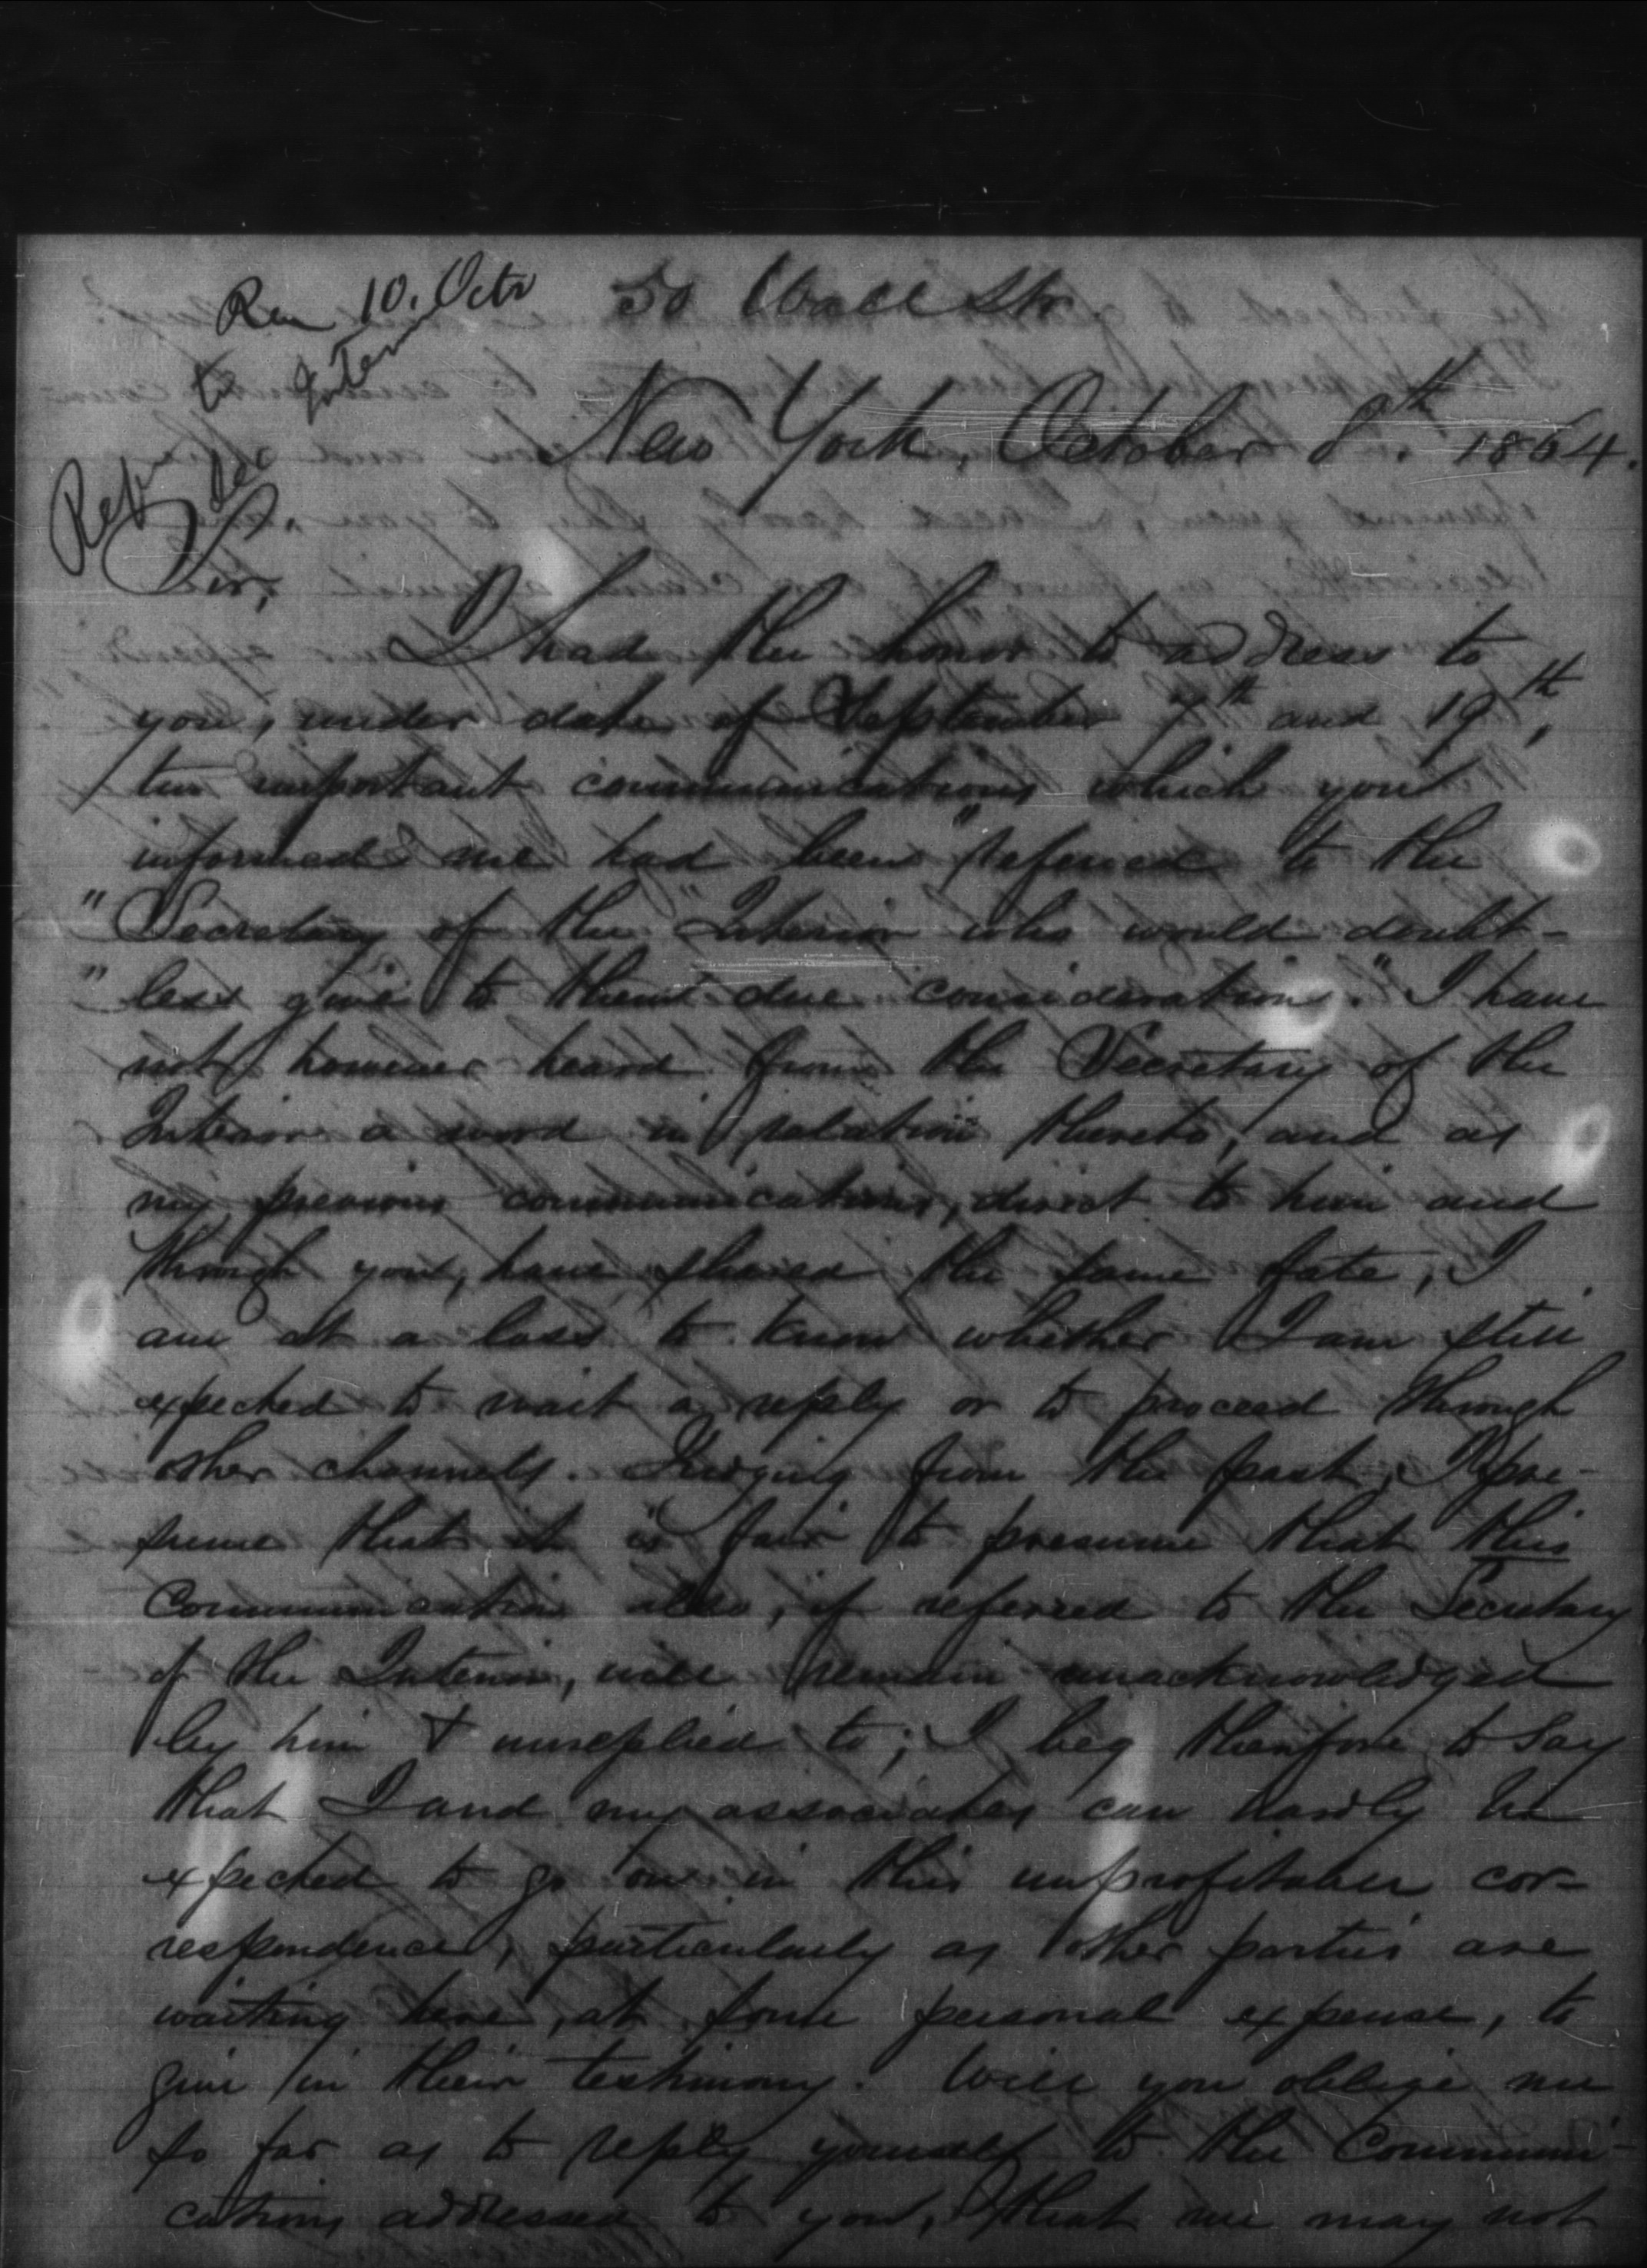 Rec 10. Octr
to Interior
50 Wall Str.
New York, October 8th. 1864.
Sir,
I had the honor to address to
you, under date of September 7th and 19th,
two important communications which you
informed me had been "referred to the
"Secretary of the Interior who would doubt-
"less give to them due consideration." I have
not however heard from the Secretary of the
Interior a word in relation thereto, and as
my previous communications, direct to him and
through you, have shared the same fate, I
am at a loss to know whether I am still
expected to wait a reply or to proceed through
other channels. Judging from the past, I pre-
sume that it is fair to presume that this
communication also, if referred to the Secretary
of the Interior, will remain unacknowledged
by him & unreplied to; I beg therefore to say
that I and my associates can hardly be
expected to go on in this unprofitable cor-
respondence, particularly as other parties are
waiting here, at some personal expense, to
give in their testimony. Will you oblige me
so far as to reply yourself to the communi-
cations addressed to you, that we may not